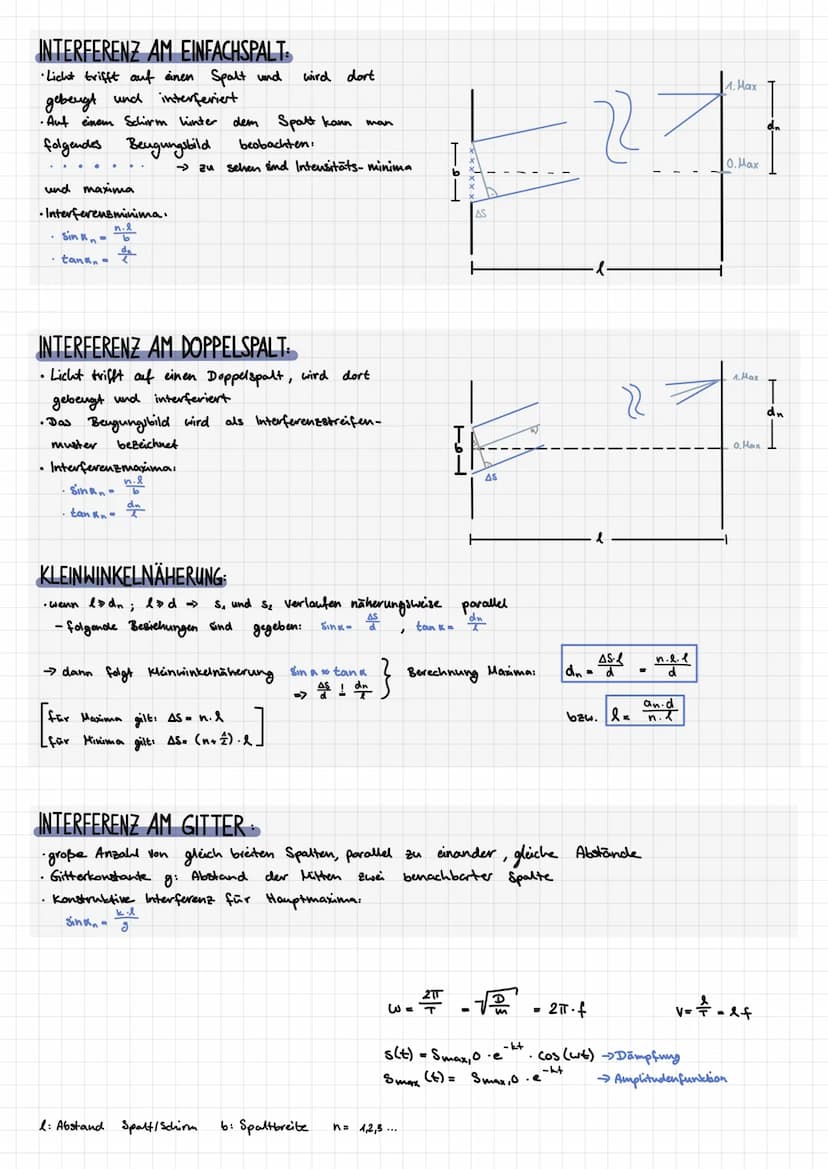 INTERFERENZ AM EINFACHSPALT:
· Licht trifft auf einen Spalt und wird dort
gebeugt und interferiert
· Auf einem Schirm hinter dem Spalt kann man
folgendes Beugungsbild beobachten:
→ zu sehen sind Intensitäts-minima
und maxima
· Interferenzminima:
· sin αn = n·λ/b
· tan αn = dn/l
1. Max
dn
0. Max
b
ΔS
l
INTERFERENZ AM DOPPELSPALT:
· Licht trifft auf einen Doppelspalt, wird dort
gebeugt und interferiert
· Das Beugungsbild wird als Interferenzstreifen-
muster bezeichnet
· Interferenzmaxima:
· sin αn = n·λ/b
· tan αn = dn/l
1. Max
dn
0. Max
b
ΔS
l
KLEINWINKELNÄHERUNG:
· wenn l≫dn ; l≫d ⇒ s₁ und s₂ verlaufen näherungsweise parallel
– folgende Beziehungen sind gegeben: sin α = ΔS/d , tan α = dn/l
→ dann folgt Kleinwinkelnäherung sin α ≈ tan α } Berechnung Maxima: dn = ΔS·l/d = n·λ·l/d
⇒ ΔS/d ! dn/l
[für Maxima gilt: ΔS = n·λ
bzw. λ = an·d/n·l
für Minima gilt: ΔS = (n+½)·λ]
INTERFERENZ AM GITTER:
· große Anzahl von gleich breiten Spalten, parallel zu einander, gleiche Abstände
· Gitterkonstante g: Abstand der Mitten zwei benachbarter Spalte
· Konstruktive Interferenz für Hauptmaxima:
sin αn = k·λ/g
ω = 2π/T = √D/m = 2π·f
v = λ/T = λf
s(t) = Smax,0 · e^-kt · cos(ωt) → Dämpfung
Smax (t) = Smax,0 · e^-kt → Amplitudenfunktion
l: Abstand Spalt/Schirm b: Spaltbreite n = 1,2,3 ...